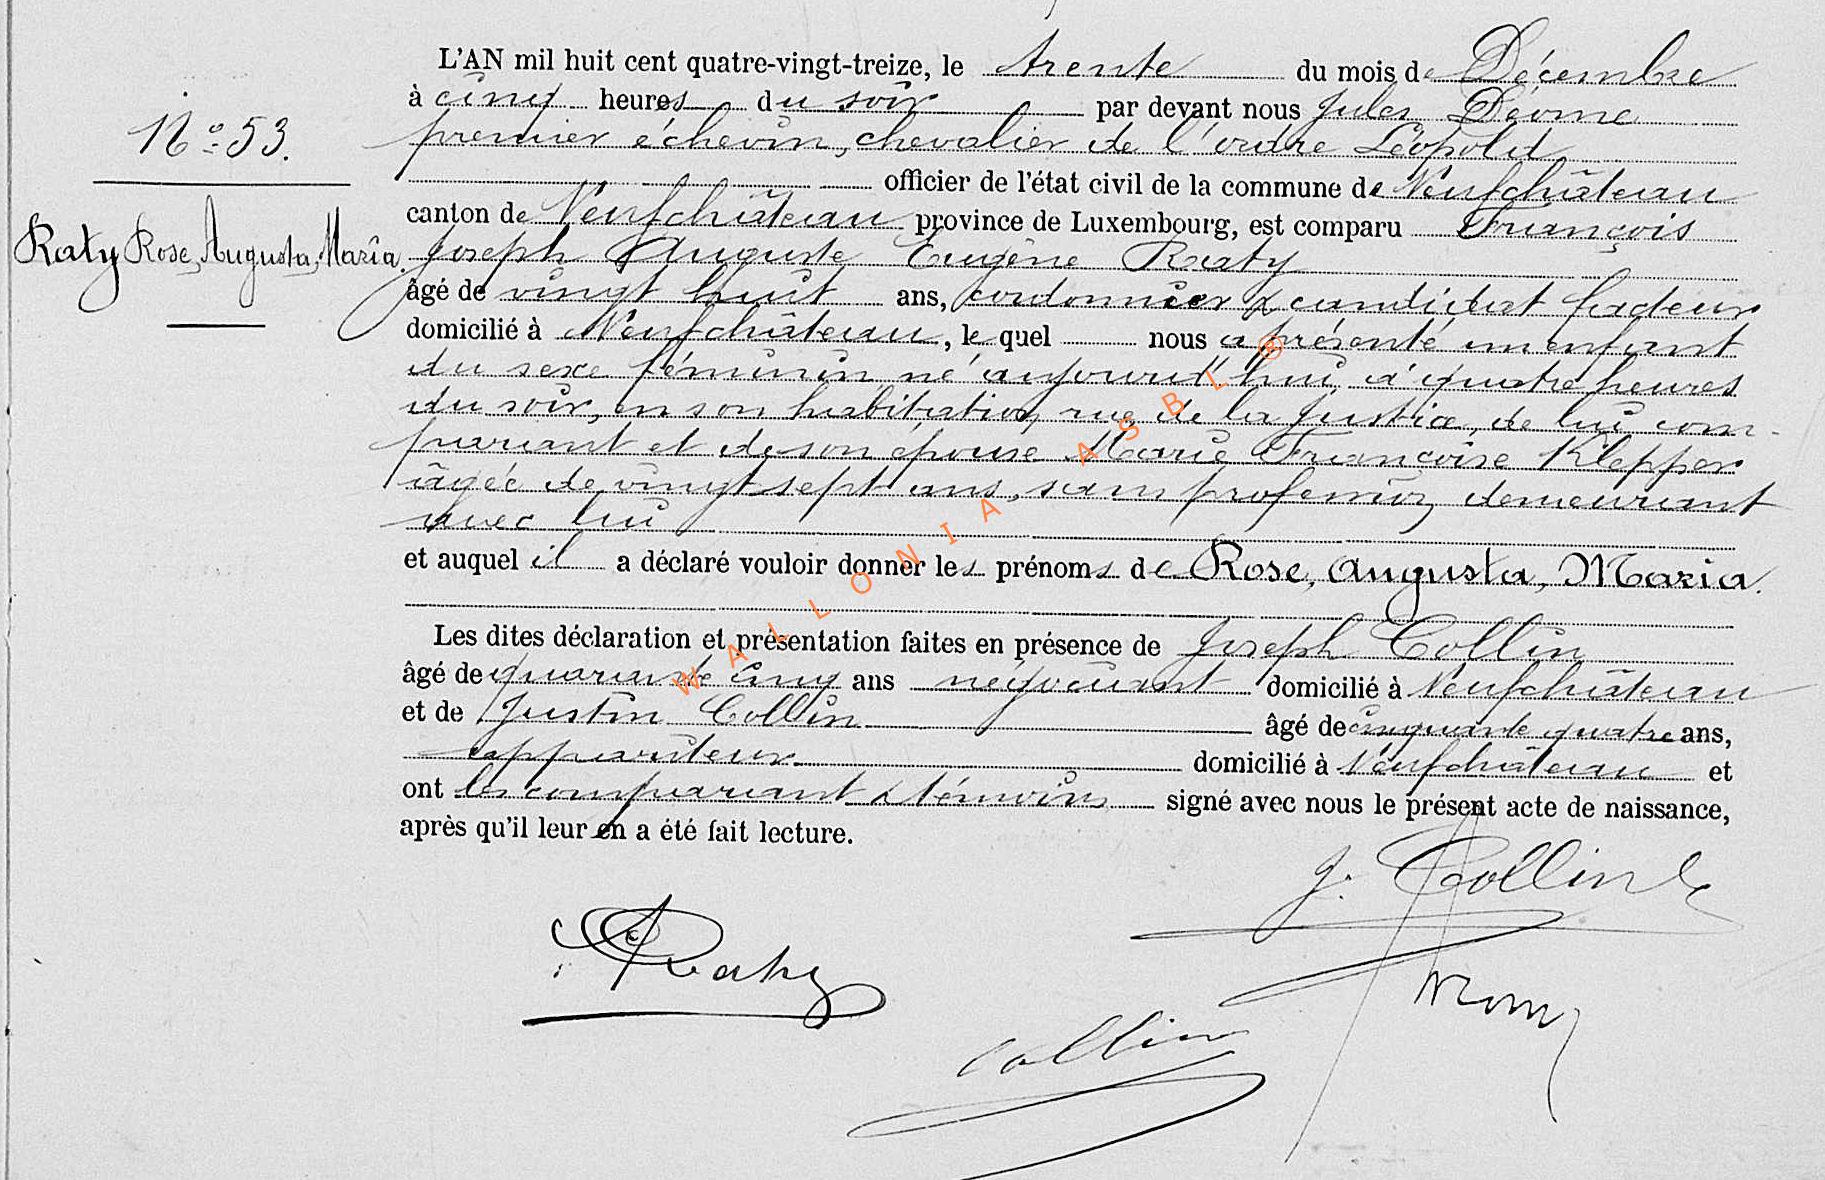 L'AN mil huit cent quatre-vingt-treize, le trente du mois de Décembre
à cinq heures du soir par devant nous Jules
premier échevin, chevalier de l'ordre Léopold
officier de l'état civil de la commune de Neufchâteau
canton de Neufchâteau province de Luxembourg, est comparu François
Joseph Auguste Eugène Raty
âgé de vingt huit ans, cordonnier & candidat facteur
domicilié à Neufchâteau, le quel nous a présenté un enfant
du sexe féminin né aujourd'hui à quatre heures
du soir, en son habitation, rue de la Justice, de lui com-
parant et de son épouse Marie Françoise Klepper
âgée de vingt sept ans, sans profession, demeurant
avec lui
et auquel il a déclaré vouloir donner les prénoms de Rose, Augusta, Maria.
Les dites déclaration et présentation faites en présence de Joseph Collin
âgé de quarante cinq ans négociant domicilié à Neufchâteau
et de Justin Collin âgé de cinquante quatre ans,
appariteur domicilié à Neufchâteau et
ont les comparant & témoins signé avec nous le présent acte de naissance,
après qu'il leur en a été fait lecture.
N° 53.
Raty Rose, Augusta, Maria.
J. Collin
Raty
Collin
WALLONIA ASBL ®